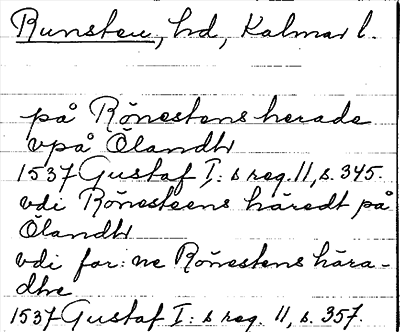 Runsten, hd, Kalmar l.
på Rönestens herade
vpå Ölandh
1537 Gustaf I: s reg. 11, s. 345.
vdi Rönesteens häredt på
Ölandh
vdi for: ne Rönestens hära-
dhe
1537 Gustaf I: s reg. 11, s. 357.